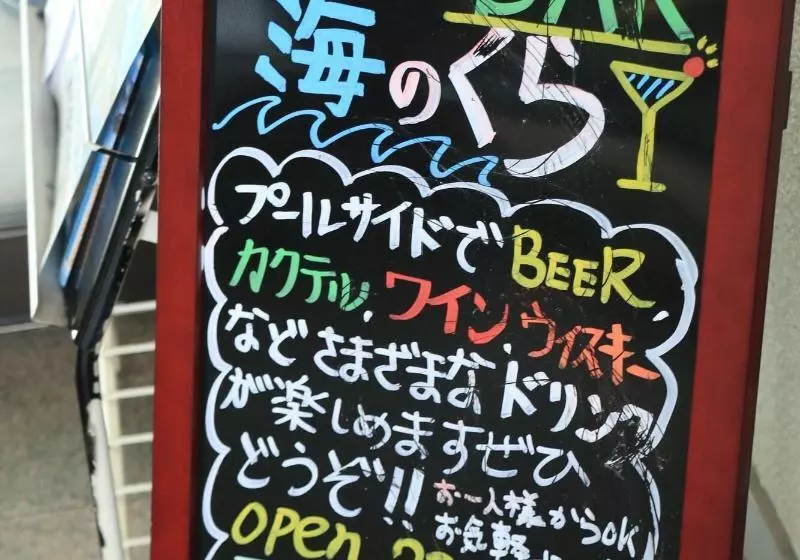 BAR
海のくら
プールサイドでBEER
カクテル、ワイン、ウイスキー
などさまざまなドリンク
が楽しめますぜひ
どうぞ!!
お一人様からOK
お気軽に
open